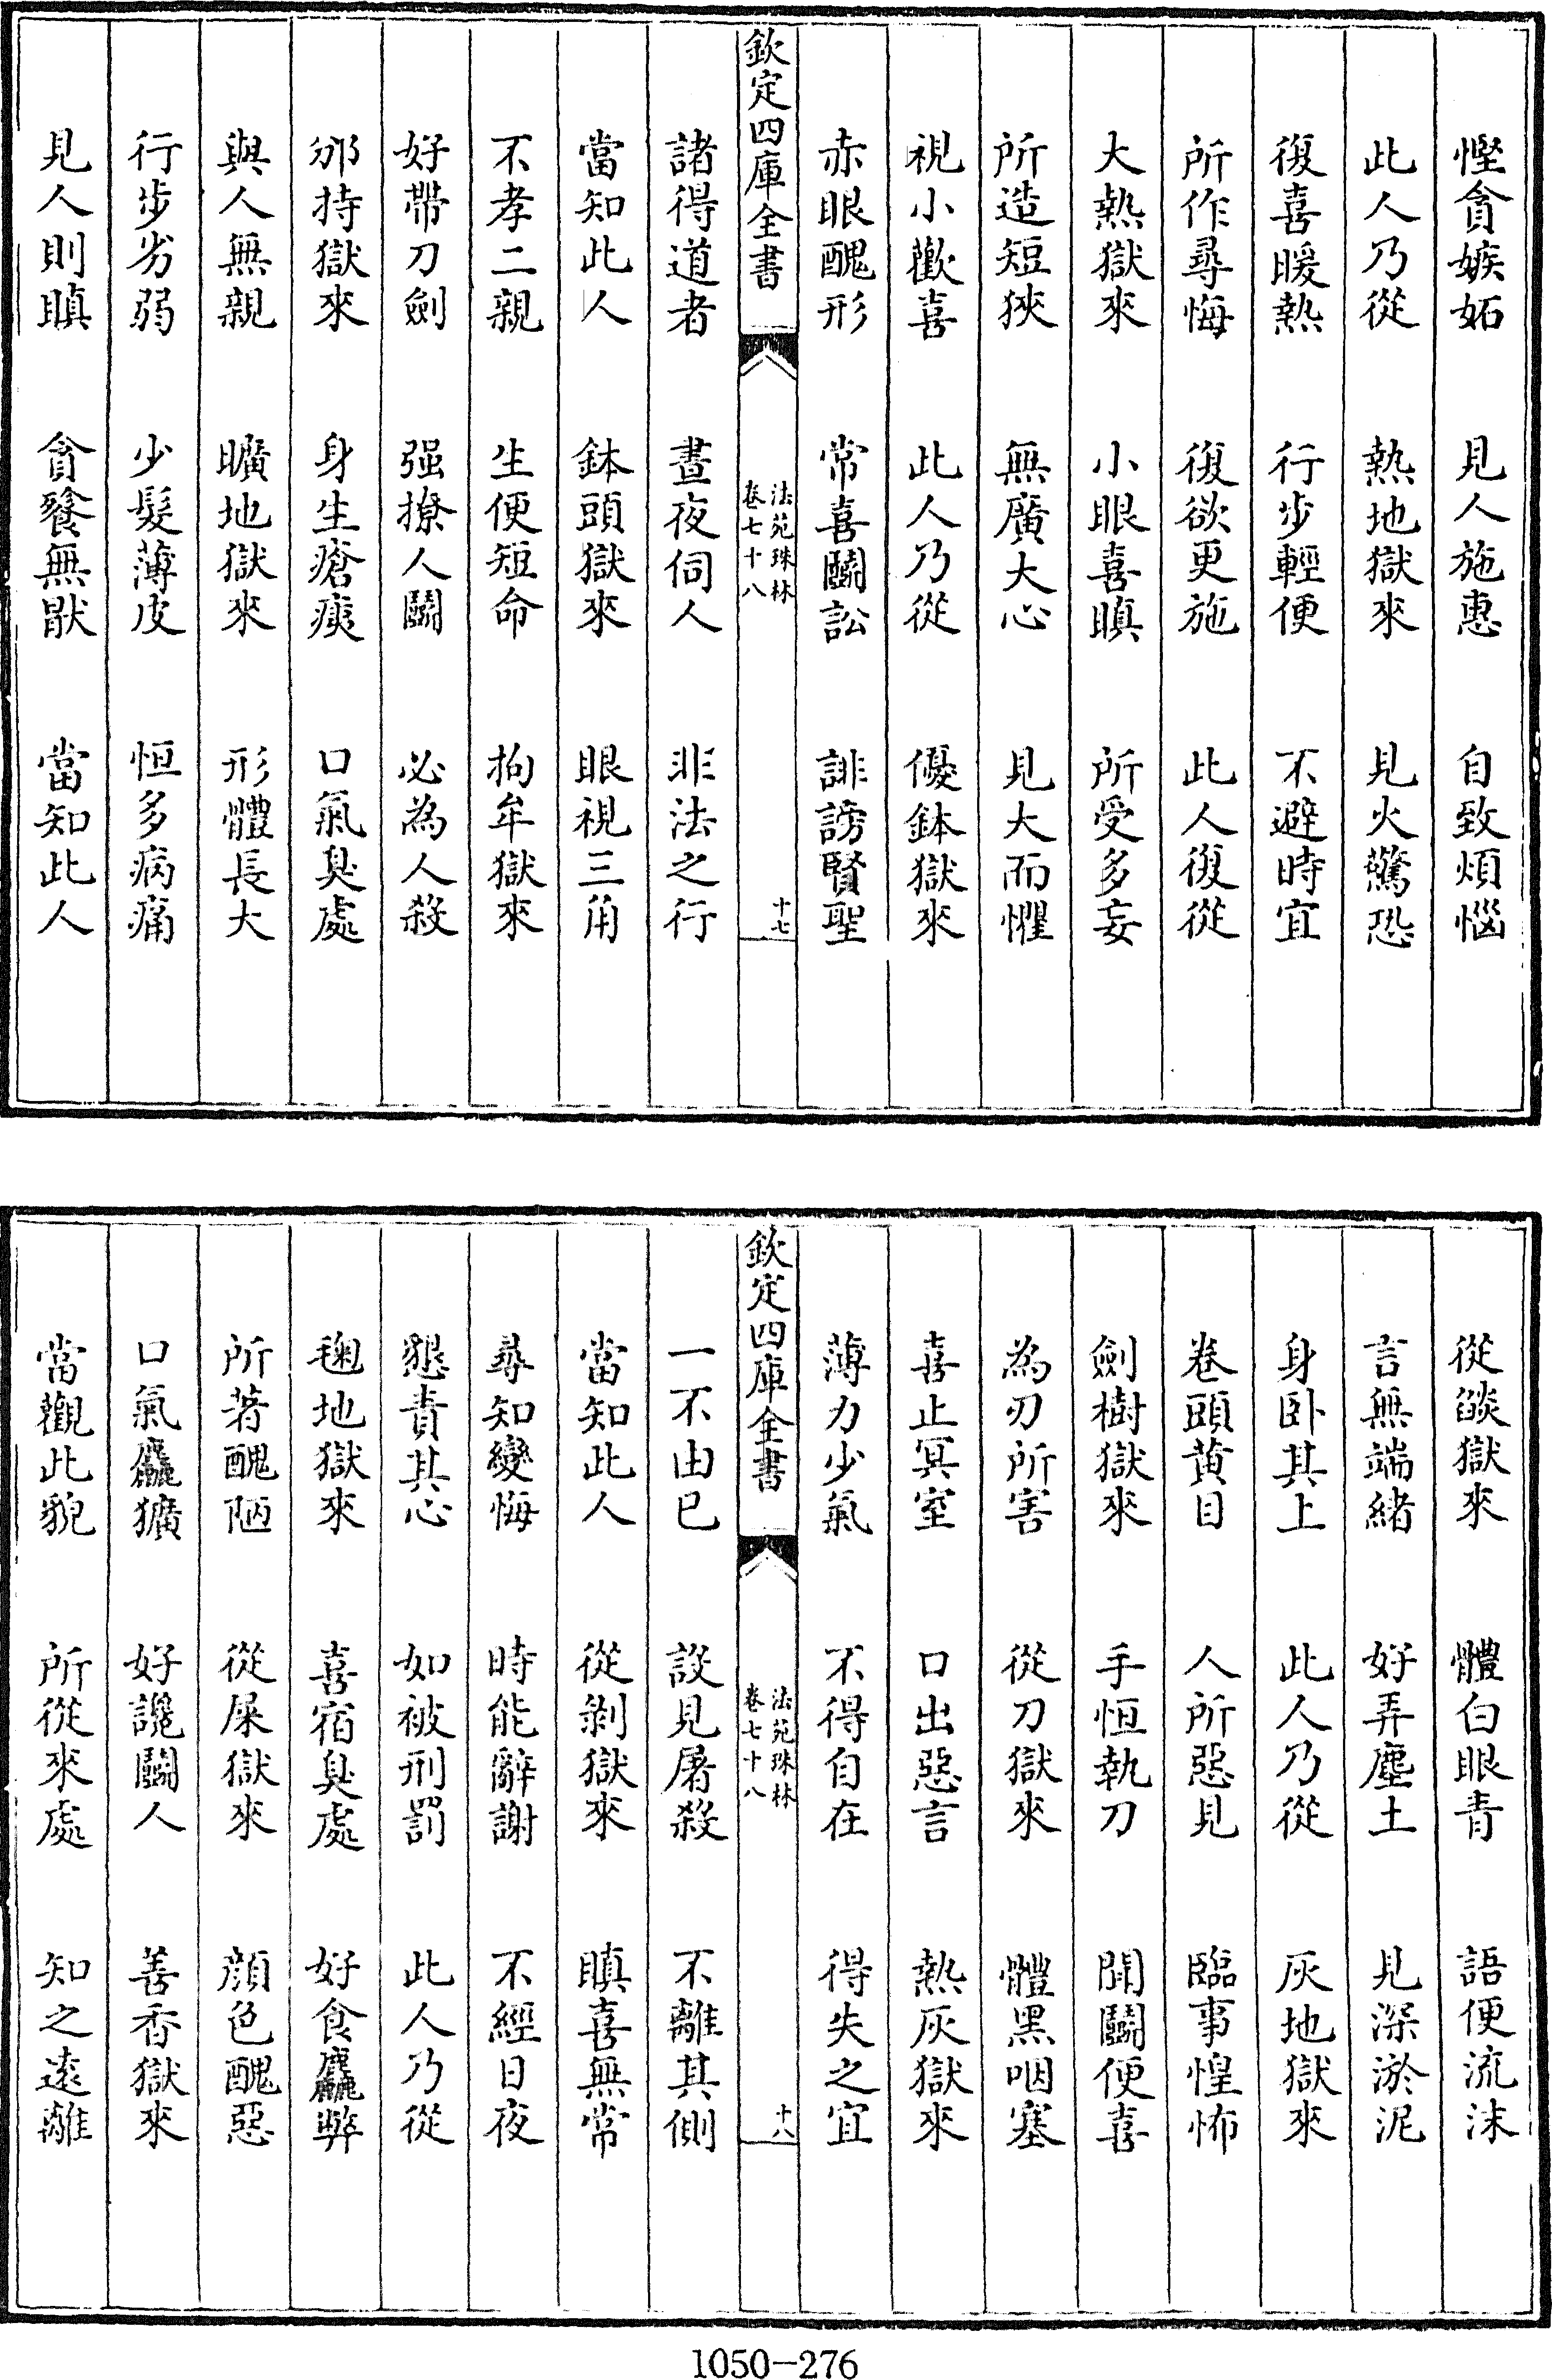 慳貪嫉妬　見人施惠　自致煩惱
此人乃從　熱地獄來　見火驚恐
復喜暖熱　行步輕便　不避時宜
所作尋悔　復欲更施　此人復從
大熱獄來　小眼喜瞋　所受多妄
所造短狹　無廣大心　見大而懼
視小歡喜　此人乃從　優鉢獄來
赤眼醜形　常喜鬬訟　誹謗賢聖
欽定四庫全書　法苑珠林　卷七十八　十七
諸得道者　晝夜伺人　非法之行
當知此人　鉢頭獄來　眼視三角
不孝二親　生便短命　拘牟獄來
好帶刀劍　强撩人鬬　必為人殺
邠持獄來　身生瘡痍　口氣臭處
與人無親　曠地獄來　形體長大
行步劣弱　少髮薄皮　恒多病痛
見人則瞋　貪餮無猒　當知此人
從燄獄來　體白眼青　語便流沫
言無端緒　好弄塵土　見深淤泥
身卧其上　此人乃從　灰地獄來
卷頭黄目　人所惡見　臨事惶怖
劍樹獄來　手恒執刀　聞鬬便喜
為刃所害　從刀獄來　體黑咽塞
喜止冥室　口出惡言　熱灰獄來
薄力少氣　不得自在　得失之宜
欽定四庫全書　法苑珠林　卷七十八　十八
一不由已　設見屠殺　不離其側
當知此人　從剝獄來　瞋喜無常
尋知變悔　時能辭謝　不經日夜
懇責其心　如被刑罰　此人乃從
毱地獄來　喜宿臭處　好食麤弊
所著醜陋　從屎獄來　顔色醜惡
口氣麤獷　好讒鬬人　善香獄來
當觀此貌　所從來處　知之遠離
1050-276